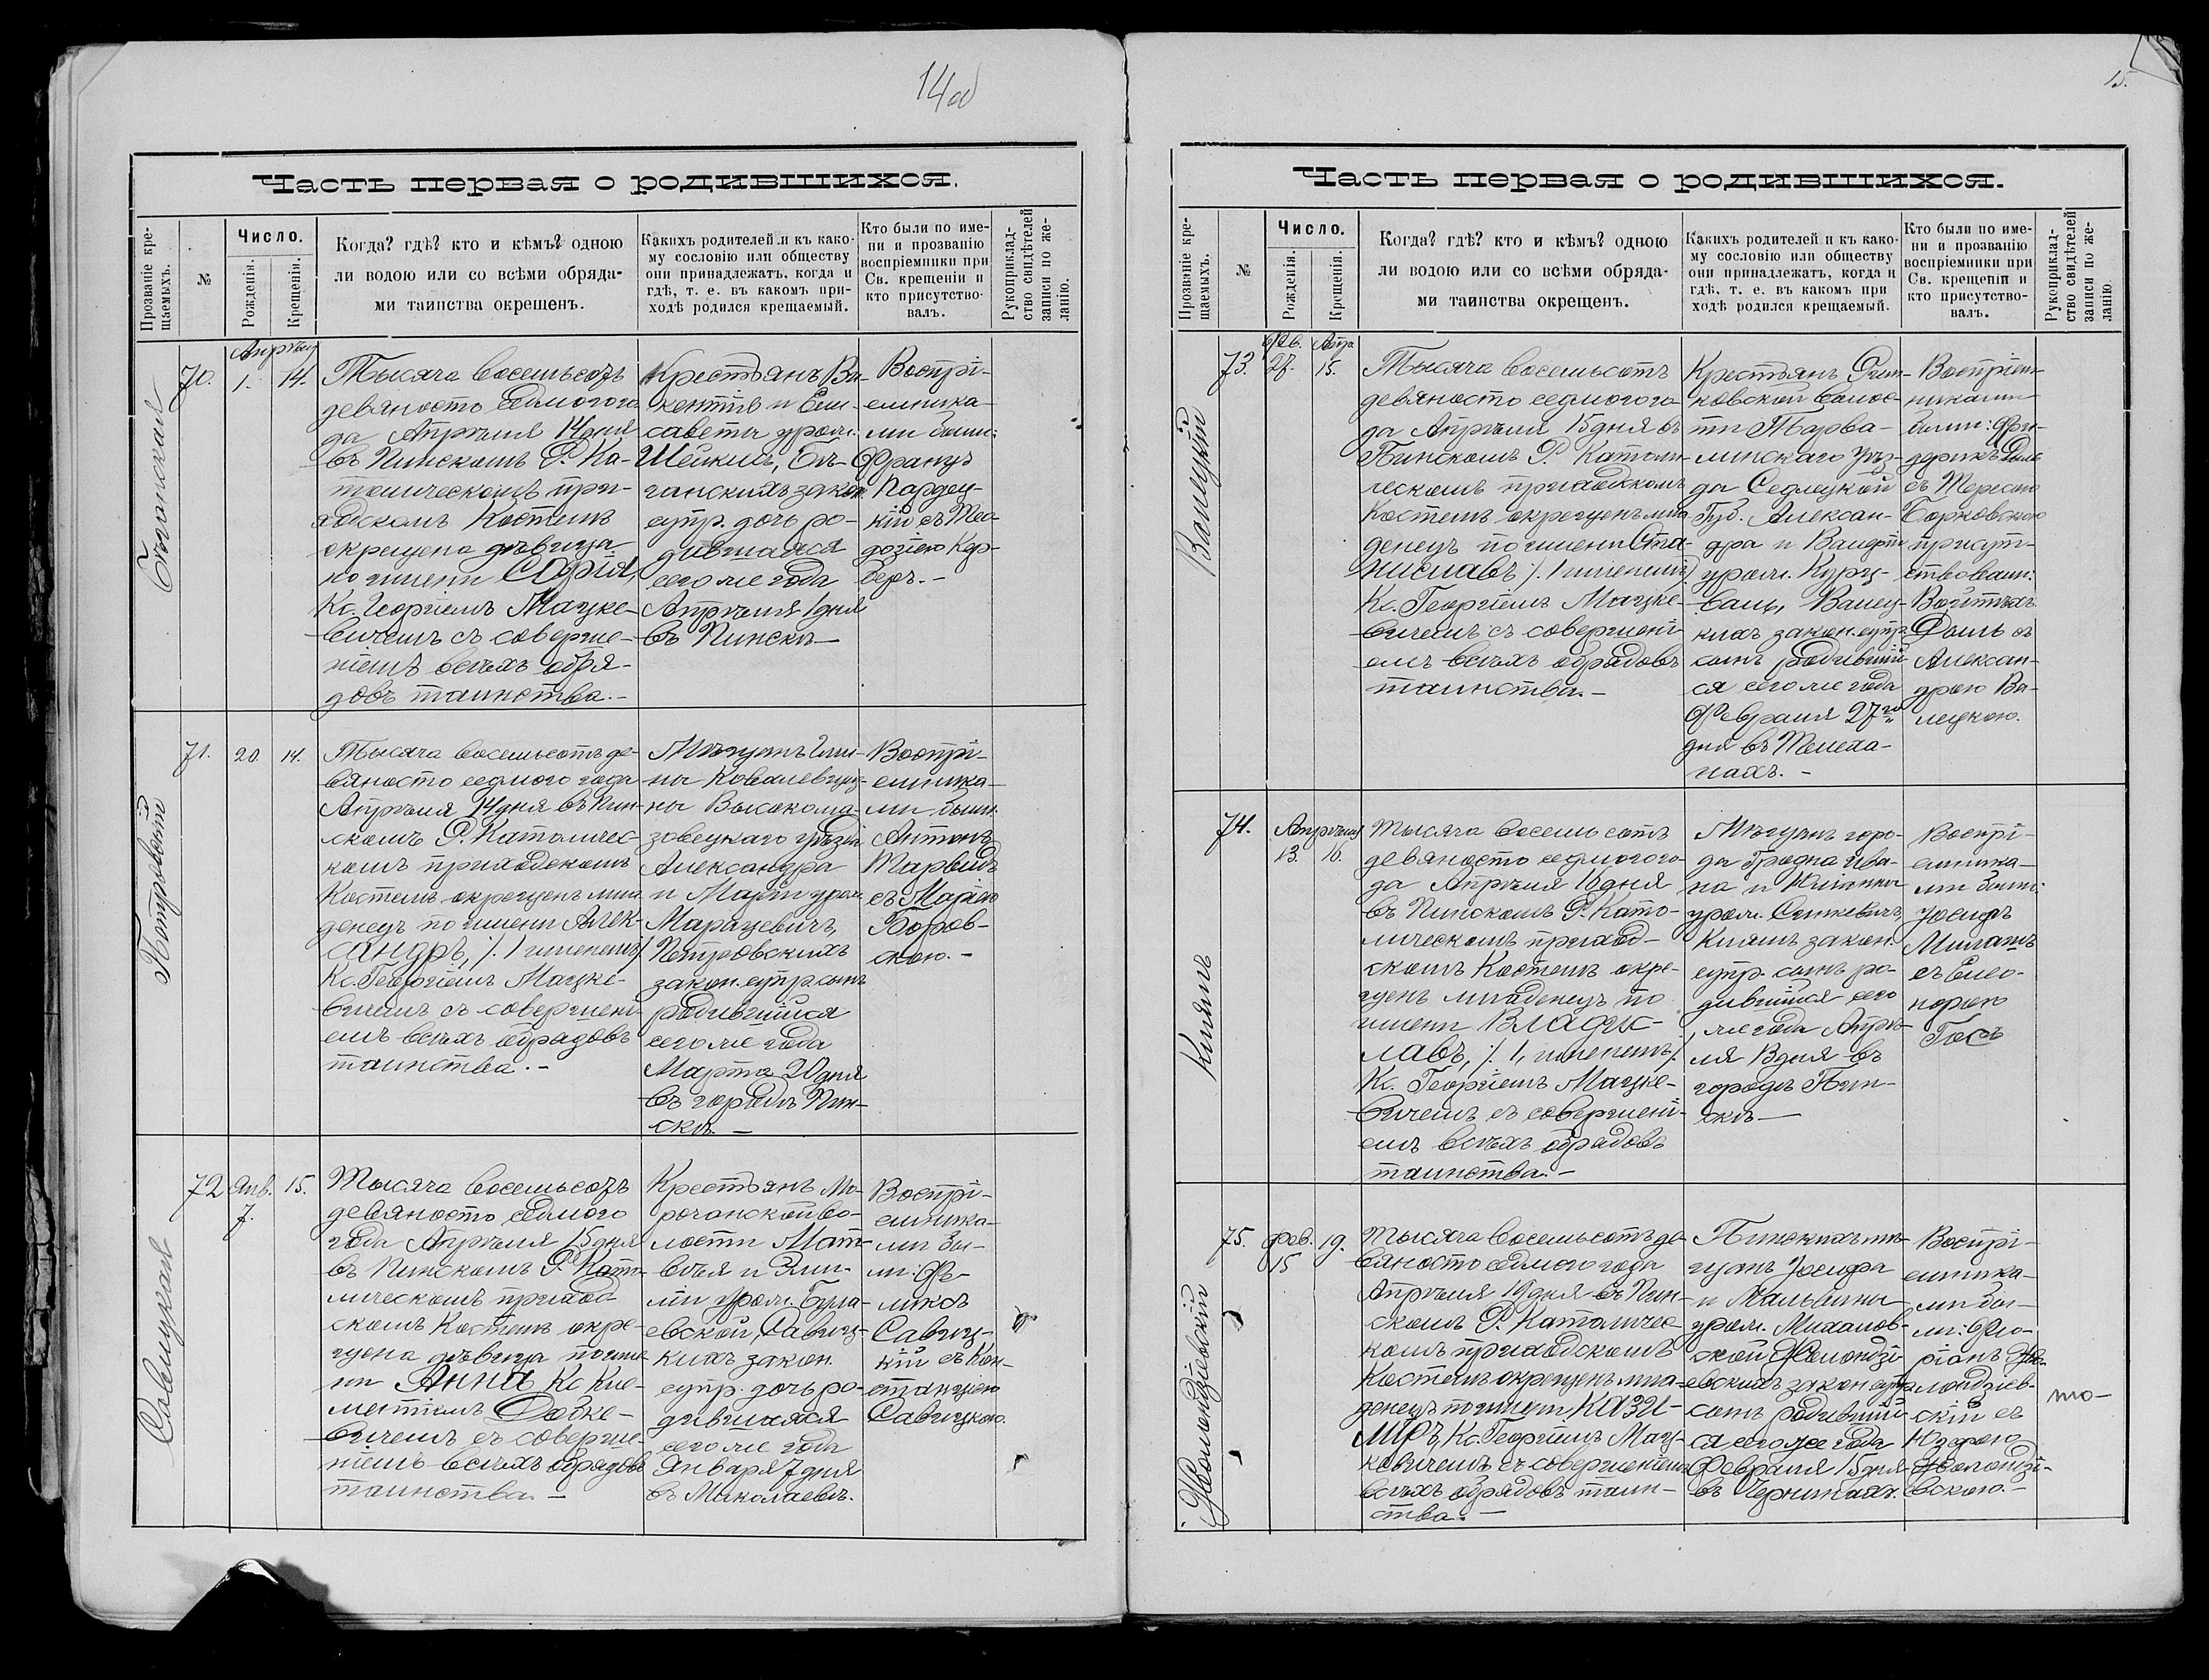 14 об
Часть первая о родившихся.
Прозваніе крещаемыхъ.
№
Число.
Рожденія.
Крещенія.
Когда? гдѣ? кто и кѣмъ? одною
ли водою или со всѣми обряда-
ми таинства окрещенъ.
Какихъ родителей и къ како-
му сословію или обществу
они принадлежатъ, когда и
гдѣ, т. е. въ какомъ при-
ходѣ родился крещаемый.
Кто были по име-
ни и прозванію
воспріемники при
Св. крещеніи и
кто присутство-
валъ.
Рукоприклад-
ство свидѣтелей
записи по же-
ланію.
70.
Апрѣля
1. 14.
Тысяча восемьсотъ
девяносто седмого го-
да Апрѣля 14 дня
въ Пинскомъ Р. Ка-
толическомъ при-
ходскомъ Костелѣ
окрещена дѣвица
по имени Софія,
Кс. Георгіемъ Мацке-
вичемъ съ соверше-
ніемъ всѣхъ обря-
довъ таинства.-
Крестьянъ Ви-
кентія и Ели-
саветы урож.
ганскихъ закон
супр. дочь ро-
дившаяся
сего же года
Апрѣля 1 дня
въ Пинскѣ-
Воспрі-
емника-
ми были:
Францъ
кій съ Тео-
дозіею
71. 20 14.
Петровскій
Тысяча восемьсотъ де-
вяносто седмого года
Апрѣля 14 дня въ Пин-
скомъ Р. Католичес-
комъ приходскомъ
Костелѣ окрещенъ мла
денецъ по имени Алек-
сандръ, /. 1 именемъ/.
Кс. Георгіемъ Мацке-
вичемъ съ совершені-
емъ всѣхъ обрядовъ
таинства.-
Мѣщанъ
Высокома-
зовецкаго уѣзда
Александра
и Маріи урож.
Марцевичъ,
Петровскихъ
закон. супр. сынъ
родившійся
сего же года
Марта 20 дня
въ городѣ Пин-
скѣ.-
Воспрі-
емника-
ми были
Антонъ
съ Маріею
Боров-
скою.-
72 Янв. 15.
7.
Савицкая
Тысяча восемьсотъ
девяносто седмого
года Апрѣля 15 дня
въ Пинскомъ Р. Като-
лическомъ приход-
скомъ Костелѣ окре-
щена дѣвица по име
ни Анна Кс Кле-
ментіемъ
вичемъ съ соверше-
ніемъ всѣхъ обрядовъ
таинства.-
Крестьянъ Мо-
рочанской во-
лости Мат-
вѣя и Эми-
ліи урож. Була-
евской, Савиц-
кихъ закон.
супр. дочь ро-
дившаяся
сего же года
Января 7 дня
въ Миколаевѣ.
Воспрі-
емника-
ми бы-
ли: Фе-
ликсъ
Савиц-
кій съ Кон-
станціею
Савицкою.
15.
Часть первая о родившихся.
Прозваніе крещаемыхъ.
№
Число.
Рожденія.
Крещенія.
Когда? гдѣ? кто и кѣмъ? одною
ли водою или со всѣми обряда-
ми таинства окрещенъ.
Какихъ родителей и къ како-
му сословію или обществу
они принадлежатъ, когда и
гдѣ, т. е. въ какомъ при
ходѣ родился крещаемый.
Кто были по име-
ни и прозванію
воспріемники при
Св. крещеніи и
кто присутство-
валъ.
Рукоприклад-
ство свидѣтелей
записи по же-
ланію.
Фев. Апр
73. 27. 15.
Валецкій
Тысяча восемьсотъ
девяносто седмого го-
да Апрѣля 15 дня въ
Пинскомъ Р. Католи-
ческомъ приходскомъ
Костелѣ окрещенъ мла
денецъ по имени Ста-
ниславъ /. 1 именемъ/
Кс. Георгіемъ Мацке-
вичемъ съ совершені-
емъ всѣхъ обрядовъ
таинства.-
Крестьянъ
сти
минскаго уѣз-
да Седлецкой
Губ. Алексан-
дра и
урож.
Валец-
кихъ закон. супр
сынъ родившій-
ся сего же года
Февраля 27го
дня въ Телеха-
нахъ.-
Воспріем-
никами
были: Фри-
дерикъ
съ Терезою
Борковскою
присут-
ствовали:
съ
Алексан-
дрою Ва-
лецкою.
74. Апрѣля
13. 16.
Тысяча восемьсотъ
девяносто седмого го-
да Апрѣля 16 дня
въ Пинскомъ Р. Като-
лическомъ приход-
скомъ Костелѣ окре-
щенъ младенецъ по
имени Владис-
лавъ, /. 1, именемъ/.
Кс. Георгіемъ Мацке-
вичемъ съ совершені-
емъ всѣхъ обрядовъ
таинства.-
Мѣщанъ горо-
да Гродна Ива-
на и
урож.
закон.
супр. сынъ ро-
дившійся сего
же года Апрѣ-
ля 13 дня въ
городѣ Пин-
скѣ-
Воспрі-
емника-
ми были:
Іосифъ
съ Елео-
норою
75. Фев. 19.
15
Тысяча восемьсотъ де-
вяносто седмого года
Апрѣля 19 дня въ Пин-
скомъ Р. Католичес
комъ приходскомъ
Костелѣ окрещенъ мла-
денецъ по имени Кази-
міръ, Кс. Георгіемъ Мац-
кевичемъ съ совершеніемъ
всѣхъ обрядовъ таин-
ства.-
Пинскихъ мѣ-
щанъ Іосифа
и Мальвины
урож. Михалов-
ской
евскихъ закон супр.
сынъ родившій-
ся сего же года
Февраля 15 дня
въ
Воспрі-
емника-
ми бы-
ли: Фло-
ріанъ
скій съ
Юзефою